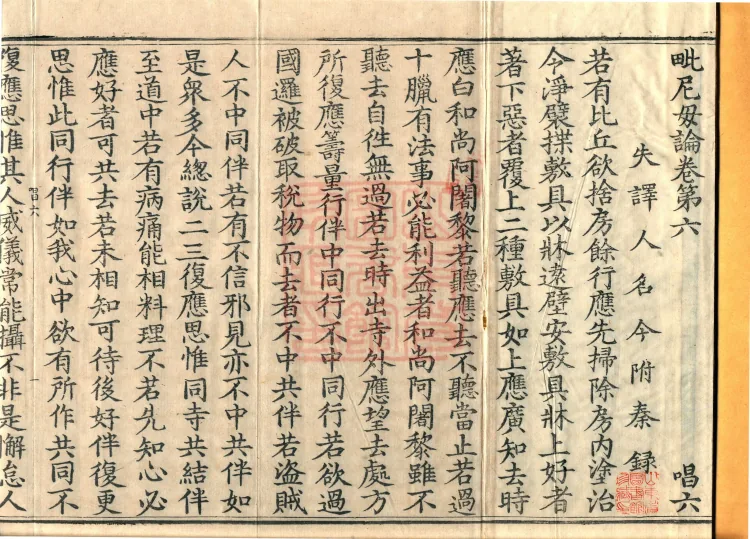 毗尼毋論卷第六 唱六
失譯人名今附秦錄
若有比丘欲捨房餘行應先掃除房内塗治
令淨襞揲敷具以牀遠壁安敷具牀上好者
著下惡者覆上二種敷具如上應廣知去時
應白和尚阿闍黎若聽應去不聽當止若過
十臘有法事必能利益者和尚阿闍黎雖不
聽去自徃無過若去時出寺外應望去處方
所復應籌量行伴中同行不中同行若欲過
國邏被破取稅物而去者不中共伴若盜賊
人不中同伴若有不信邪見亦不中共伴如
是衆多今緫說二三復應思惟同寺共結伴
至道中若有病痛能相料理不若先知心必
應好者可共去若未相知可待後好伴復更
思惟此同行伴如我心中欲有所作共同不
唱六
復應思惟其人威儀常能攝不非是懈怠人